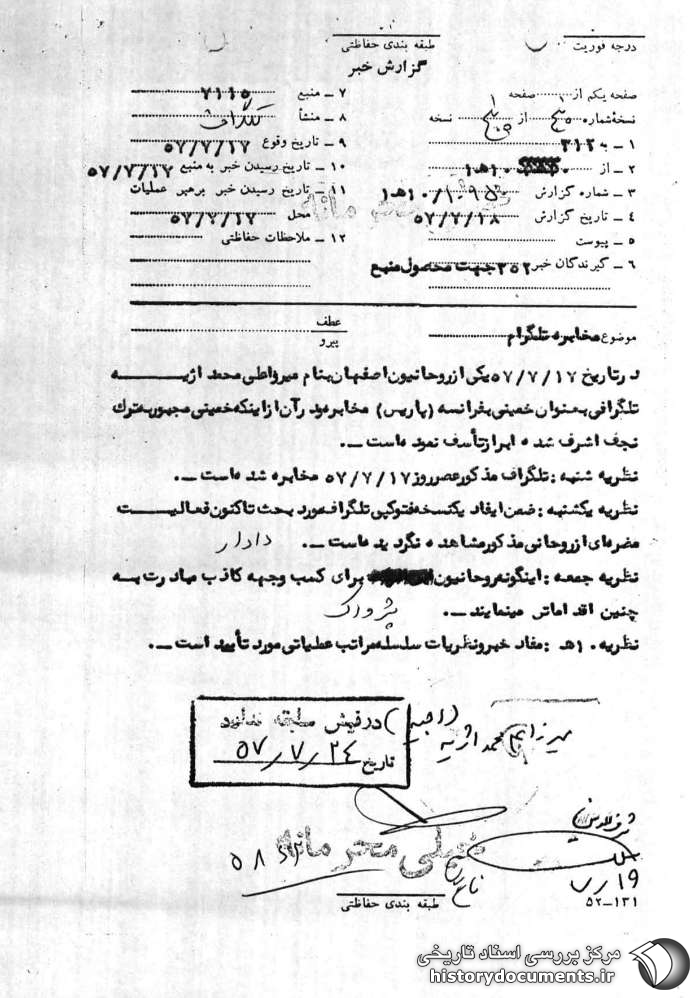 درجه فوریت
طبقه بندی حفاظتی
گزارش خبر
صفحه یکم از ۱ صفحه
نسخه شماره پنج از پنج نسخه
۱ ـ به ۳۱۲
۲ ـ از ۱۰هـ ۱
۳ ـ شماره گزارش ۱۰هـ ۱
۴ ـ تاریخ گزارش ۵۷/۷/۱۸
۵ ـ پیوست
۶ ـ گیرندگان خبر ۳۵۲ جهت محصول منبع
۷ ـ منبع ۷۱۱۵
۸ ـ منشأ تلگراف
۹ ـ تاریخ وقوع ۵۷/۷/۱۷
۱۰ ـ تاریخ رسیدن خبر به منبع ۵۷/۷/۱۷
۱۱ ـ تاریخ رسیدن خبر برهبر عملیات
محل ۵۷/۷/۱۷
۱۲ ـ ملاحظات حفاظتی
خیلی محرمانه
موضوع مخابره تلگرام
عطف
پیرو
در تاریخ ۵۷/۷/۱۷ یکی از روحانیون اصفهان بنام میرواطی محمد اژیه
تلگرافی به عنوان خمینی بفرانسه (پاریس) مخابره و در آن از اینکه خمینی مجبور به ترك
نجف اشرف شده ابراز تأسف نموده است ـ.
نظریه شنبه : تلگراف مذکور عصر روز ۵۷/۷/۱۷ مخابره شده است ـ.
نظریه یکشنبه : ضمن ایفاد یکنسخه فتوکپی تلگراف مورد بحث تاکنون فعالیت
مضره ای از روحانی مذکور مشاهده نگردیده است ـ. دادار
نظریه جمعه : اینگونه روحانیون برای کسب وجهه کاذب مبادرت به
چنین اقداماتی مینمایند ـ. پژواک
نظریه ۱۰هـ : مفاد خبر و نظریات سلسله مراتب عملیاتی مورد تأیید است ـ.
میرزا محمد اژیه
در فیش سابقه نمائید
تاریخ ۵۷/۷/۲۴
خیلی محرمانه
طبقه بندی حفاظتی
۵۲-۱۳۱
مرکز بررسی اسناد تاریخی
historydocuments.ir